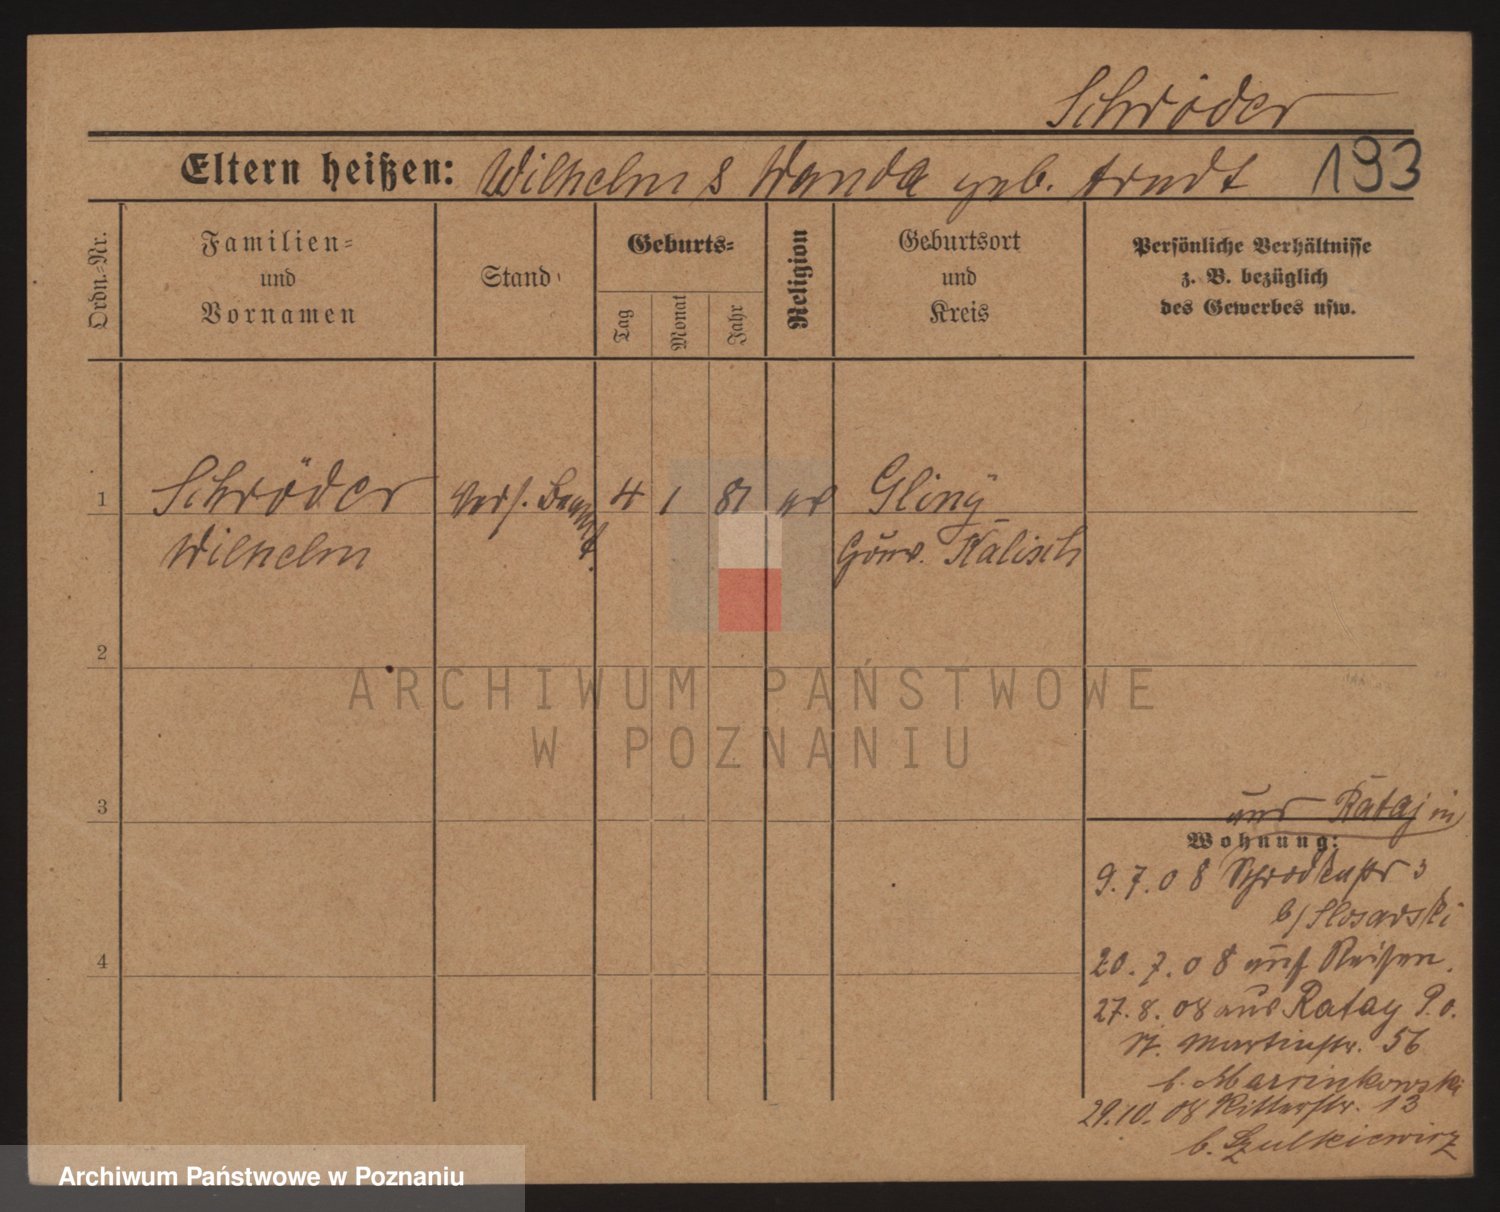 Schröder
Eltern heißen: Wilhelm & Wanda geb. Arndt 193
Ordn.-Nr.
Familien-
und
Vornamen
Stand
Geburts-
Tag
Monat
Jahr
Religion
Geburtsort
und
Kreis
Persönliche Verhältnisse
z. B. bezüglich
des Gewerbes usw.
1 Schröder Vers. Beamt. 4 1 81 ev Gliny
Wilhelm Gouv. Kalisch
2
3
4
aus Rataj in
Wohnung:
9.7.08 Schrodkastr 3
b/ Slosarski
20.7.08 auf Reisen.
27.8.08 aus Ratay P.O.
St. Martinstr. 56
b. Marcinkowski
29.10.08 Ritterstr. 13
b. Szulkiewicz
ARCHIWUM PAŃSTWOWE
W POZNANIU
Archiwum Państwowe w Poznaniu